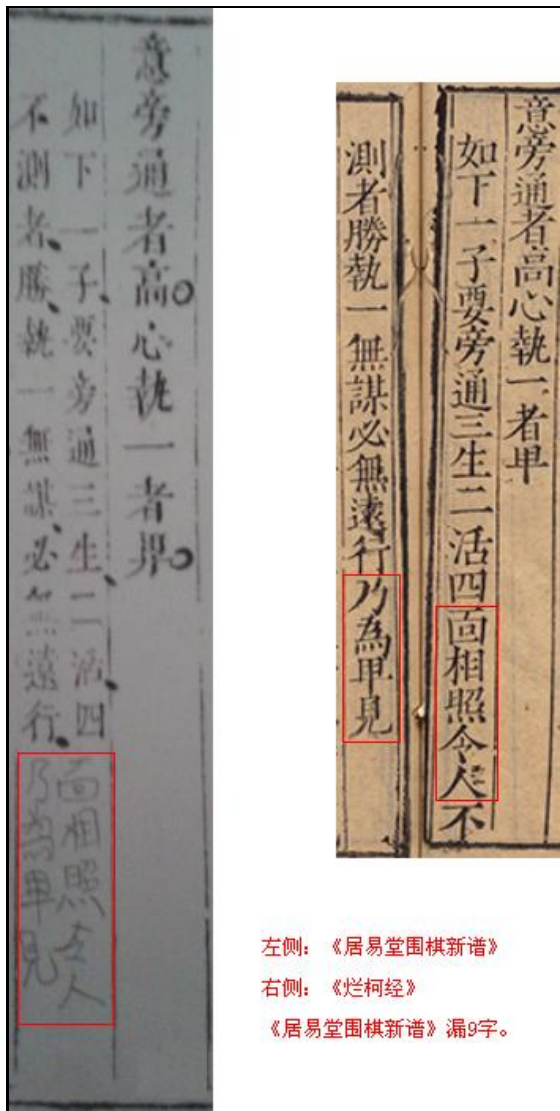 意旁通者高。心執一者卑。
如下一子、要旁通三生、二活、四面相照令人
不測者、勝、執一無謀、必無遠行、乃為卑見
意旁通者高心執一者卑
如下一子要旁通三生二活四面相照令人不
測者勝執一無謀必無遠行乃為卑見
左侧：《居易堂围棋新谱》
右侧：《烂柯经》
《居易堂围棋新谱》漏9字。